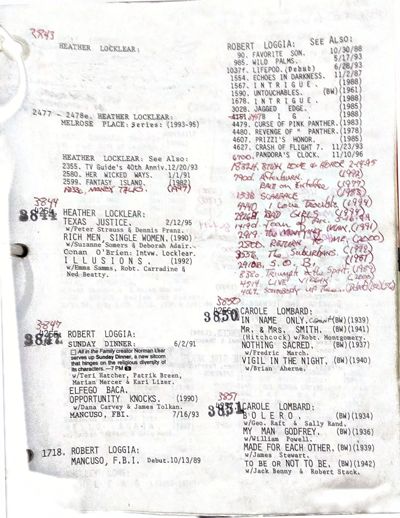 3843
HEATHER LOCKLEAR:
2477 - 2478e. HEATHER LOCKLEAR:
MELROSE PLACE: Series: (1993-95)
HEATHER LOCKLEAR: See Also:
2355. TV Guide's 40th Anniv. 12/20/93
2580. HER WICKED WAYS. 1/1/91
2599. FANTASY ISLAND. (1982)
MONEY TALKS (1997)
3844
HEATHER LOCKLEAR:
TEXAS JUSTICE. 2/12/95
w/Peter Strauss & Dennis Franz.
RICH MEN, SINGLE WOMEN. (1990)
w/Suzanne Somers & Deborah Adair.
Conan O'Brien: Intvw. Locklear.
ILLUSIONS. (1992)
w/Emma Samms, Robt. Carradine &
Ned Beatty.
3847
ROBERT LOGGIA:
SUNDAY DINNER: 6/2/91
All in the Family creator Norman Lear
serves up Sunday Dinner, a new sitcom
that hinges on the religious diversity of
its characters. —7 PM
w/Teri Hatcher, Patrik Breen,
Marian Mercer & Kari Lizer.
ELFEGO BACA.
OPPORTUNITY KNOCKS. (1990)
w/Dana Carvey & James Tolkan.
MANCUSO, FBI. 7/16/93
1718. ROBERT LOGGIA:
MANCUSO, F.B.I. Debut. 10/13/89
ROBERT LOGGIA: SEE ALSO:
90. FAVORITE SON. 10/30/88
985. WILD PALMS. 5/17/93
1037f. LIFEPOD. (Debut) 6/28/93
1554. ECHOES IN DARKNESS. 11/2/87
1567. INTRIGUE. (1988)
1590. UNTOUCHABLES. (BW) (1961)
1678. INTRIGUE. (1988)
3028. JAGGED EDGE. (1985)
BIG (1988)
4479. CURSE OF PINK PANTHER. (1983)
4480. REVENGE OF " PANTHER. (1978)
4607. PRIZZI'S HONOR. (1985)
4627. CRASH OF FLIGHT 7. 11/23/73
6900. PANDORA'S CLOCK. 11/10/96
(1977)
SCARFACE (1983)
I Love Trouble (1994)
BAD GIRLS (1994)
(1991)
RETURN TO ME (2000)
The Suburbans
S.O.B. (1981)
3850
CAROLE LOMBARD:
IN NAME ONLY. (BW) (1939)
MR. & MRS. SMITH. (BW) (1941)
(Hitchcock) w/Robt. Montgomery.
NOTHING SACRED. (1937)
w/Fredric March.
VIGIL IN THE NIGHT. (BW) (1940)
w/Brian Aherne.
3851
CAROLE LOMBARD:
BOLERO. (BW) (1934)
w/Geo. Raft & Sally Rand.
MY MAN GODFREY. (BW) (1936)
w/William Powell.
MADE FOR EACH OTHER. (BW) (1939)
w/James Stewart.
TO BE OR NOT TO BE. (BW) (1942)
w/Jack Benny & Robert Stack.